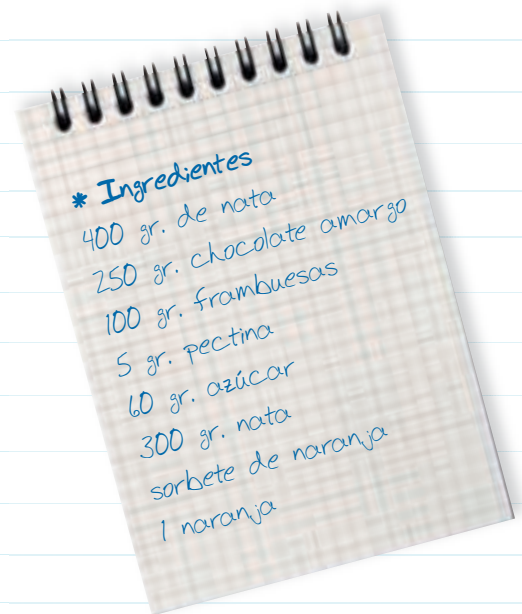 * Ingredientes
400 gr. de nata
250 gr. chocolate amargo
100 gr. frambuesas
5 gr. pectina
60 gr. azúcar
300 gr. nata
sorbete de naranja
1 naranja